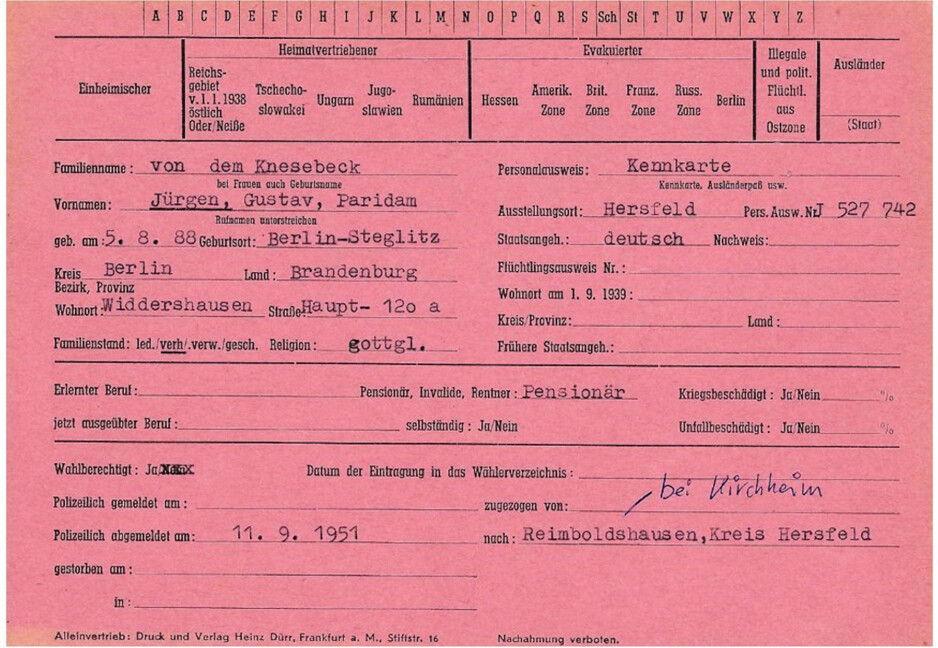 A B C D E F G H I J K L M N O P Q R S Sch St T U V W X Y Z
Einheimischer
Heimatvertriebener
Reichs-
gebiet
v. 1. 1. 1938
östlich
Oder/Neiße
Tschecho-
slowakei
Ungarn
Jugo-
slawien
Rumänien
Evakuierter
Hessen
Amerik.
Zone
Brit.
Zone
Franz.
Zone
Russ.
Zone
Berlin
Illegale
und polit.
Flüchtl.
aus
Ostzone
Ausländer
(Staat)
Familienname: von dem Knesebeck
bei Frauen auch Geburtsname
Vornamen: Jürgen, Gustav, Paridam
Rufnamen unterstreichen
geb. am: 5. 8. 88 Geburtsort: Berlin-Steglitz
Kreis Berlin Land: Brandenburg
Bezirk, Provinz
Wohnort: Widdershausen Straße: Haupt- 12o a
Familienstand: led./verh/.verw./gesch. Religion: gottgl.
Personalausweis: Kennkarte
Kennkarte, Ausländerpaß usw.
Ausstellungsort: Hersfeld Pers. Ausw. Nr. J 527 742
Staatsangeh.: deutsch Nachweis:
Flüchtlingsausweis Nr.:
Wohnort am 1. 9. 1939:
Kreis/Provinz: Land:
Frühere Staatsangeh.:
Erlernter Beruf: Pensionär, Invalide, Rentner: Pensionär Kriegsbeschädigt: Ja/Nein %
jetzt ausgeübter Beruf: selbständig: Ja/Nein Unfallbeschädigt: Ja/Nein %
Wahlberechtigt: Ja/ Datum der Eintragung in das Wählerverzeichnis:
Polizeilich gemeldet am: zugezogen von: bei Kirchheim
Polizeilich abgemeldet am: 11. 9. 1951 nach: Reimboldshausen,Kreis Hersfeld
gestorben am:
in:
Alleinvertrieb: Druck und Verlag Heinz Dürr, Frankfurt a. M., Stiftstr. 16 Nachahmung verboten.